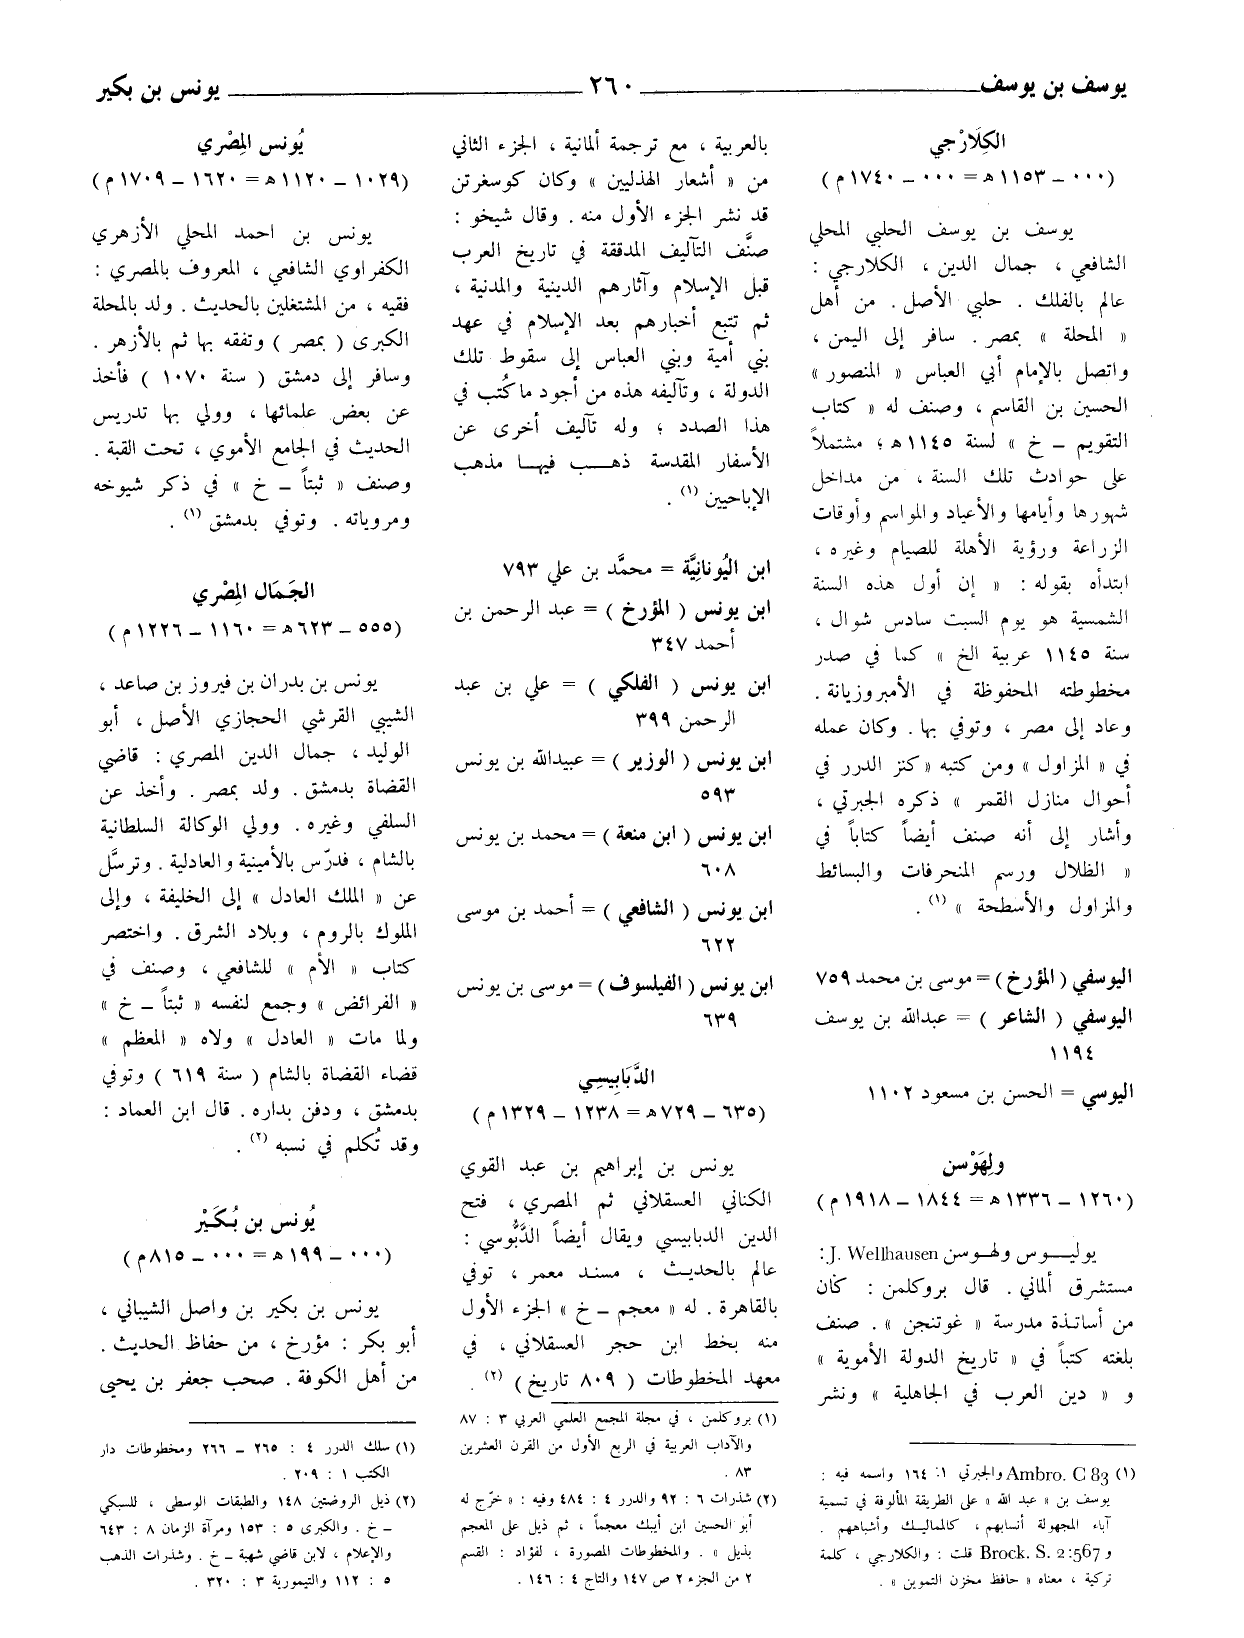 يوسف بن يوسف ٢٦٠ يونس بن بكير
الكِلارْجي
(٠٠٠ – ١١٥٣ ه = ٠٠٠ – ١٧٤٠ م)
يوسف بن يوسف الحلبي المحلي
الشافعي ، جمال الدين ، الكلارجي :
عالم بالفلك . حلبي الأصل . من أهل
« المحلة » بمصر . سافر إلى اليمن ،
واتصل بالإمام أبي العباس « المنصور »
الحسين بن القاسم ، وصنف له « كتاب
التقويم – خ » لسنة ١١٤٥ ه ؛ مشتملاً
على حوادث تلك السنة ، من مداخل
شهورها وأيامها والأعياد والمواسم وأوقات
الزراعة ورؤية الأهلة للصيام وغيره ،
ابتدأه بقوله : « إن أول هذه السنة
الشمسية هو يوم السبت سادس شوال ،
سنة ١١٤٥ عربية الخ » كما في صدر
مخطوطته المحفوظة في الأمبروزيانة .
وعاد إلى مصر ، وتوفي بها . وكان عمله
في « المزاول » ومن كتبه « كنز الدرر في
أحوال منازل القمر » ذكره الجبرتي ،
وأشار إلى أنه صنف أيضاً كتاباً في
« الظلال ورسم المنحرفات والبسائط
والمزاول والأسطحة » (١) .
اليوسفي ( المؤرخ ) = موسى بن محمد ٧٥٩
اليوسفي ( الشاعر ) = عبدالله بن يوسف
١١٩٤
اليوسي = الحسن بن مسعود ١١٠٢
ولهَوْسن
(١٢٦٠ – ١٣٣٦ ه = ١٨٤٤ – ١٩١٨ م)
يوليوس ولهوسن J. Wellhausen :
مستشرق ألماني . قال بروكلمن : كان
من أساتذة مدرسة « غوتنجن » . صنف
بلغته كتباً في « تاريخ الدولة الأموية »
و « دين العرب في الجاهلية » ونشر
(١) Ambro. C 83 والجبرتي ١ : ١٦٤ واسمه فيه :
يوسف بن « عبد الله » على الطريقة المألوفة في تسمية
آباء المجهولة أنسابهم ، كالمماليك وأشباههم .
و Brock. S. 2:567 قلت : والكلارجي ، كلمة
تركية ، معناه « حافظ مخزن التموين » .
بالعربية ، مع ترجمة ألمانية ، الجزء الثاني
من « أشعار الهذليين » وكان كوسغرتن
قد نشر الجزء الأول منه . وقال شيخو :
صنَّف التآليف المدققة في تاريخ العرب
قبل الإسلام وآثارهم الدينية والمدنية ،
ثم تتبع أخبارهم بعد الإسلام في عهد
بني أمية وبني العباس إلى سقوط تلك
الدولة ، وتآليفه هذه من أجود ما كُتب في
هذا الصدد ؛ وله تآليف أخرى عن
الأسفار المقدسة ذهب فيها مذهب
الإباحيين (١) .
ابن اليُونانِيَّة = محمَّد بن علي ٧٩٣
ابن يونس ( المؤرخ ) = عبد الرحمن بن
أحمد ٣٤٧
ابن يونس ( الفلكي ) = علي بن عبد
الرحمن ٣٩٩
ابن يونس ( الوزير ) = عبيدالله بن يونس
٥٩٣
ابن يونس ( ابن منعة ) = محمد بن يونس
٦٠٨
ابن يونس ( الشافعي ) = أحمد بن موسى
٦٢٢
ابن يونس ( الفيلسوف ) = موسى بن يونس
٦٣٩
الدَّبَابِيسِي
(٦٣٥ – ٧٢٩ ه = ١٢٣٨ – ١٣٢٩ م)
يونس بن إبراهيم بن عبد القوي
الكناني العسقلاني ثم المصري ، فتح
الدين الدبابيسي ويقال أيضاً الدَّبُّوسي :
عالم بالحديث ، مسند معمر ، توفي
بالقاهرة . له « معجم – خ » الجزء الأول
منه بخط ابن حجر العسقلاني ، في
معهد المخطوطات ( ٨٠٩ تاريخ ) (٢) .
(١) بروكلمن ، في مجلة المجمع العلمي العربي ٣ : ٨٧
والآداب العربية في الربع الأول من القرن العشرين
٨٣ .
(٢) شذرات ٦ : ٩٢ والدرر ٤ : ٤٨٤ وفيه : « خرّج له
أبو الحسين ابن أيبك معجماً ، ثم ذيل على المعجم
بذيل » . والمخطوطات المصورة ، لفؤاد : القسم
٢ من الجزء ٢ ص ١٤٧ والتاج ٤ : ١٤٦ .
يُونس المِصْري
(١٠٢٩ – ١١٢٠ ه = ١٦٢٠ – ١٧٠٩ م)
يونس بن احمد المحلي الأزهري
الكفراوي الشافعي ، المعروف بالمصري :
فقيه ، من المشتغلين بالحديث . ولد بالمحلة
الكبرى ( بمصر ) وتفقه بها ثم بالأزهر .
وسافر إلى دمشق ( سنة ١٠٧٠ ) فأخذ
عن بعض علمائها ، وولي بها تدريس
الحديث في الجامع الأموي ، تحت القبة .
وصنف « ثبتاً – خ » في ذكر شيوخه
ومروياته . وتوفي بدمشق (١) .
الجَمَال المِصْري
(٥٥٥ – ٦٢٣ ه = ١١٦٠ – ١٢٢٦ م)
يونس بن بدران بن فيروز بن صاعد ،
الشيبي القرشي الحجازي الأصل ، أبو
الوليد ، جمال الدين المصري : قاضي
القضاة بدمشق . ولد بمصر . وأخذ عن
السلفي وغيره . وولي الوكالة السلطانية
بالشام ، فدرّس بالأمينية والعادلية . وترسَّل
عن « الملك العادل » إلى الخليفة ، وإلى
الملوك بالروم ، وبلاد الشرق . واختصر
كتاب « الأم » للشافعي ، وصنف في
« الفرائض » وجمع لنفسه « ثبتاً – خ »
ولما مات « العادل » ولاه « المعظم »
قضاء القضاة بالشام ( سنة ٦١٩ ) وتوفي
بدمشق ، ودفن بداره . قال ابن العماد :
وقد تُكلم في نسبه (٢) .
يُونس بن بُكَيْر
(٠٠٠ – ١٩٩ ه = ٠٠٠ – ٨١٥ م)
يونس بن بكير بن واصل الشيباني ،
أبو بكر : مؤرخ ، من حفاظ الحديث .
من أهل الكوفة . صحب جعفر بن يحيى
(١) سلك الدرر ٤ : ٢٦٥ – ٢٦٦ ومخطوطات دار
الكتب ١ : ٢٠٩ .
(٢) ذيل الروضتين ١٤٨ والطبقات الوسطى ، للسبكي
– خ . والكبرى ٥ : ١٥٣ ومرآة الزمان ٨ : ٦٤٣
والإعلام ، لابن قاضي شهبة – خ . وشذرات الذهب
٥ : ١١٢ والتيمورية ٣ : ٣٢٠ .